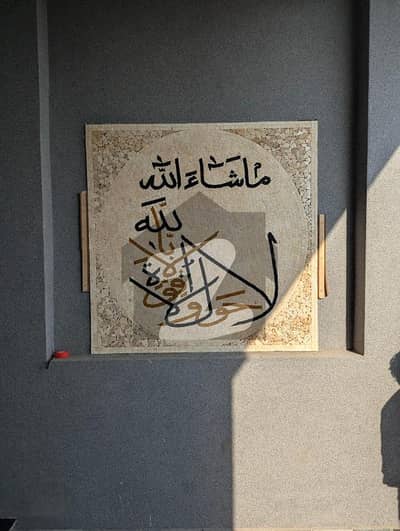 ماشاء الله
لا حول ولا قوة إلا بالله